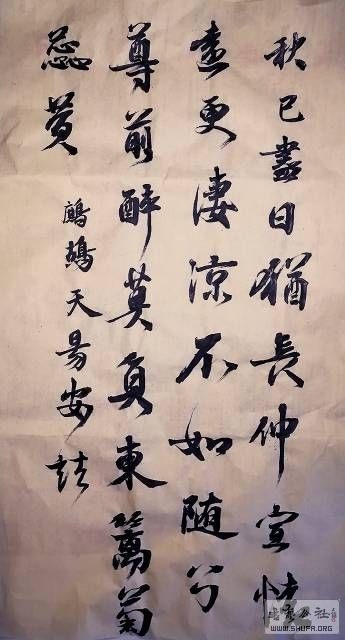 秋已盡日猶長仲宣懷
遠更淒涼不如随分
尊前醉莫負東籬菊
蕊黄
鷓鴣天易安詞
書法公社
WWW.SHUFA.ORG